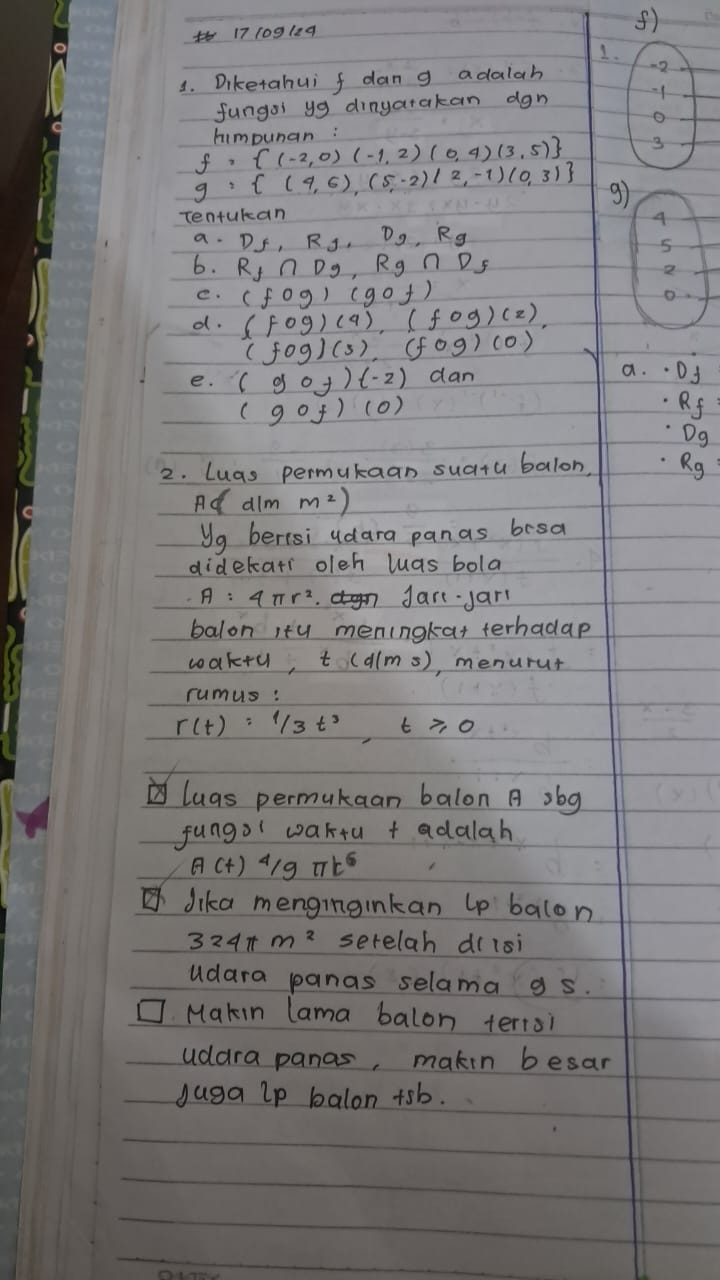 17/09/24
1. Diketahui f dan g adalah
fungsi yg dinyatakan dgn
himpunan :
f = { (-2,0) (-1,2) (0,4)(3,5)}
g = { (4,6), (5,-2)(2,-1)(0,3)}
Tentukan
a. Df, Rf, Dg, Rg
b. Rf ∩ Dg, Rg ∩ Df
c. (fog) (gof)
d. (fog)(4), (fog)(2),
(fog)(5), (fog)(0)
e. (gof)(-2) dan
(gof)(0)
2. Luas permukaan suatu balon,
A( dlm m²)
Yg berisi udara panas bisa
didekati oleh luas bola
A : 4πr². Jari-jari
balon itu meningkat terhadap
waktu, t (dlm s), menurut
rumus :
r(t) : 1/3 t³, t ≥ 0
☒ luas permukaan balon A sbg
fungsi waktu t adalah
A(t) 4/9 πt⁶
☑ Jika menginginkan lp balon
324π m² setelah diisi
udara panas selama 9 s.
☐ Makin lama balon terisi
udara panas, makin besar
juga lp balon tsb.
f)
1.
-2
-1
0
3
g)
4
5
2
0
a. · Df
· Rf =
· Dg
· Rg =